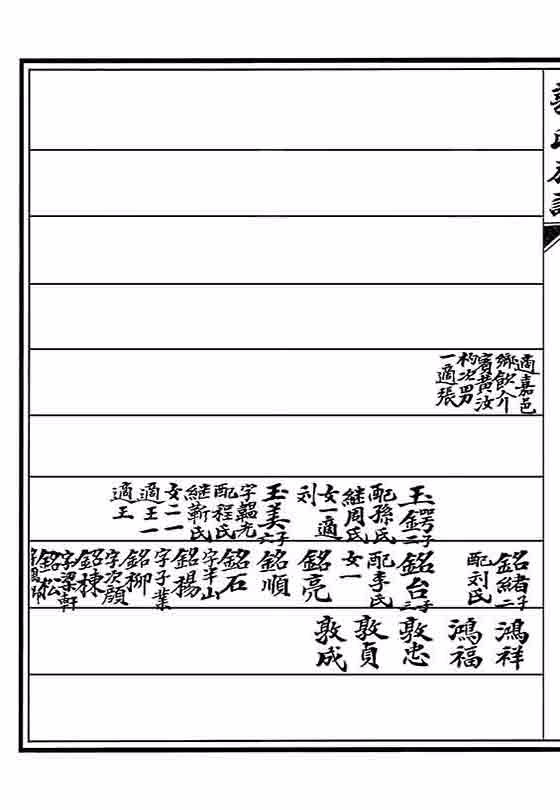 適嘉邑
鄉飲介
賓黄汝
杓次四男
一適張
玉鍔二子
配孫氏
継周氏
女一適
刘
玉美六子
字韞光
配程氏
継靳氏
女二一
適王一
適王
銘緒二子
配刘氏
銘台三子
配李氏
女一
銘亮
銘順
銘石
字半山
銘楊
字子業
銘柳
字次顔
銘棟
字梁軒
銘松
鴻祥
鴻福
敦忠
敦貞
敦成